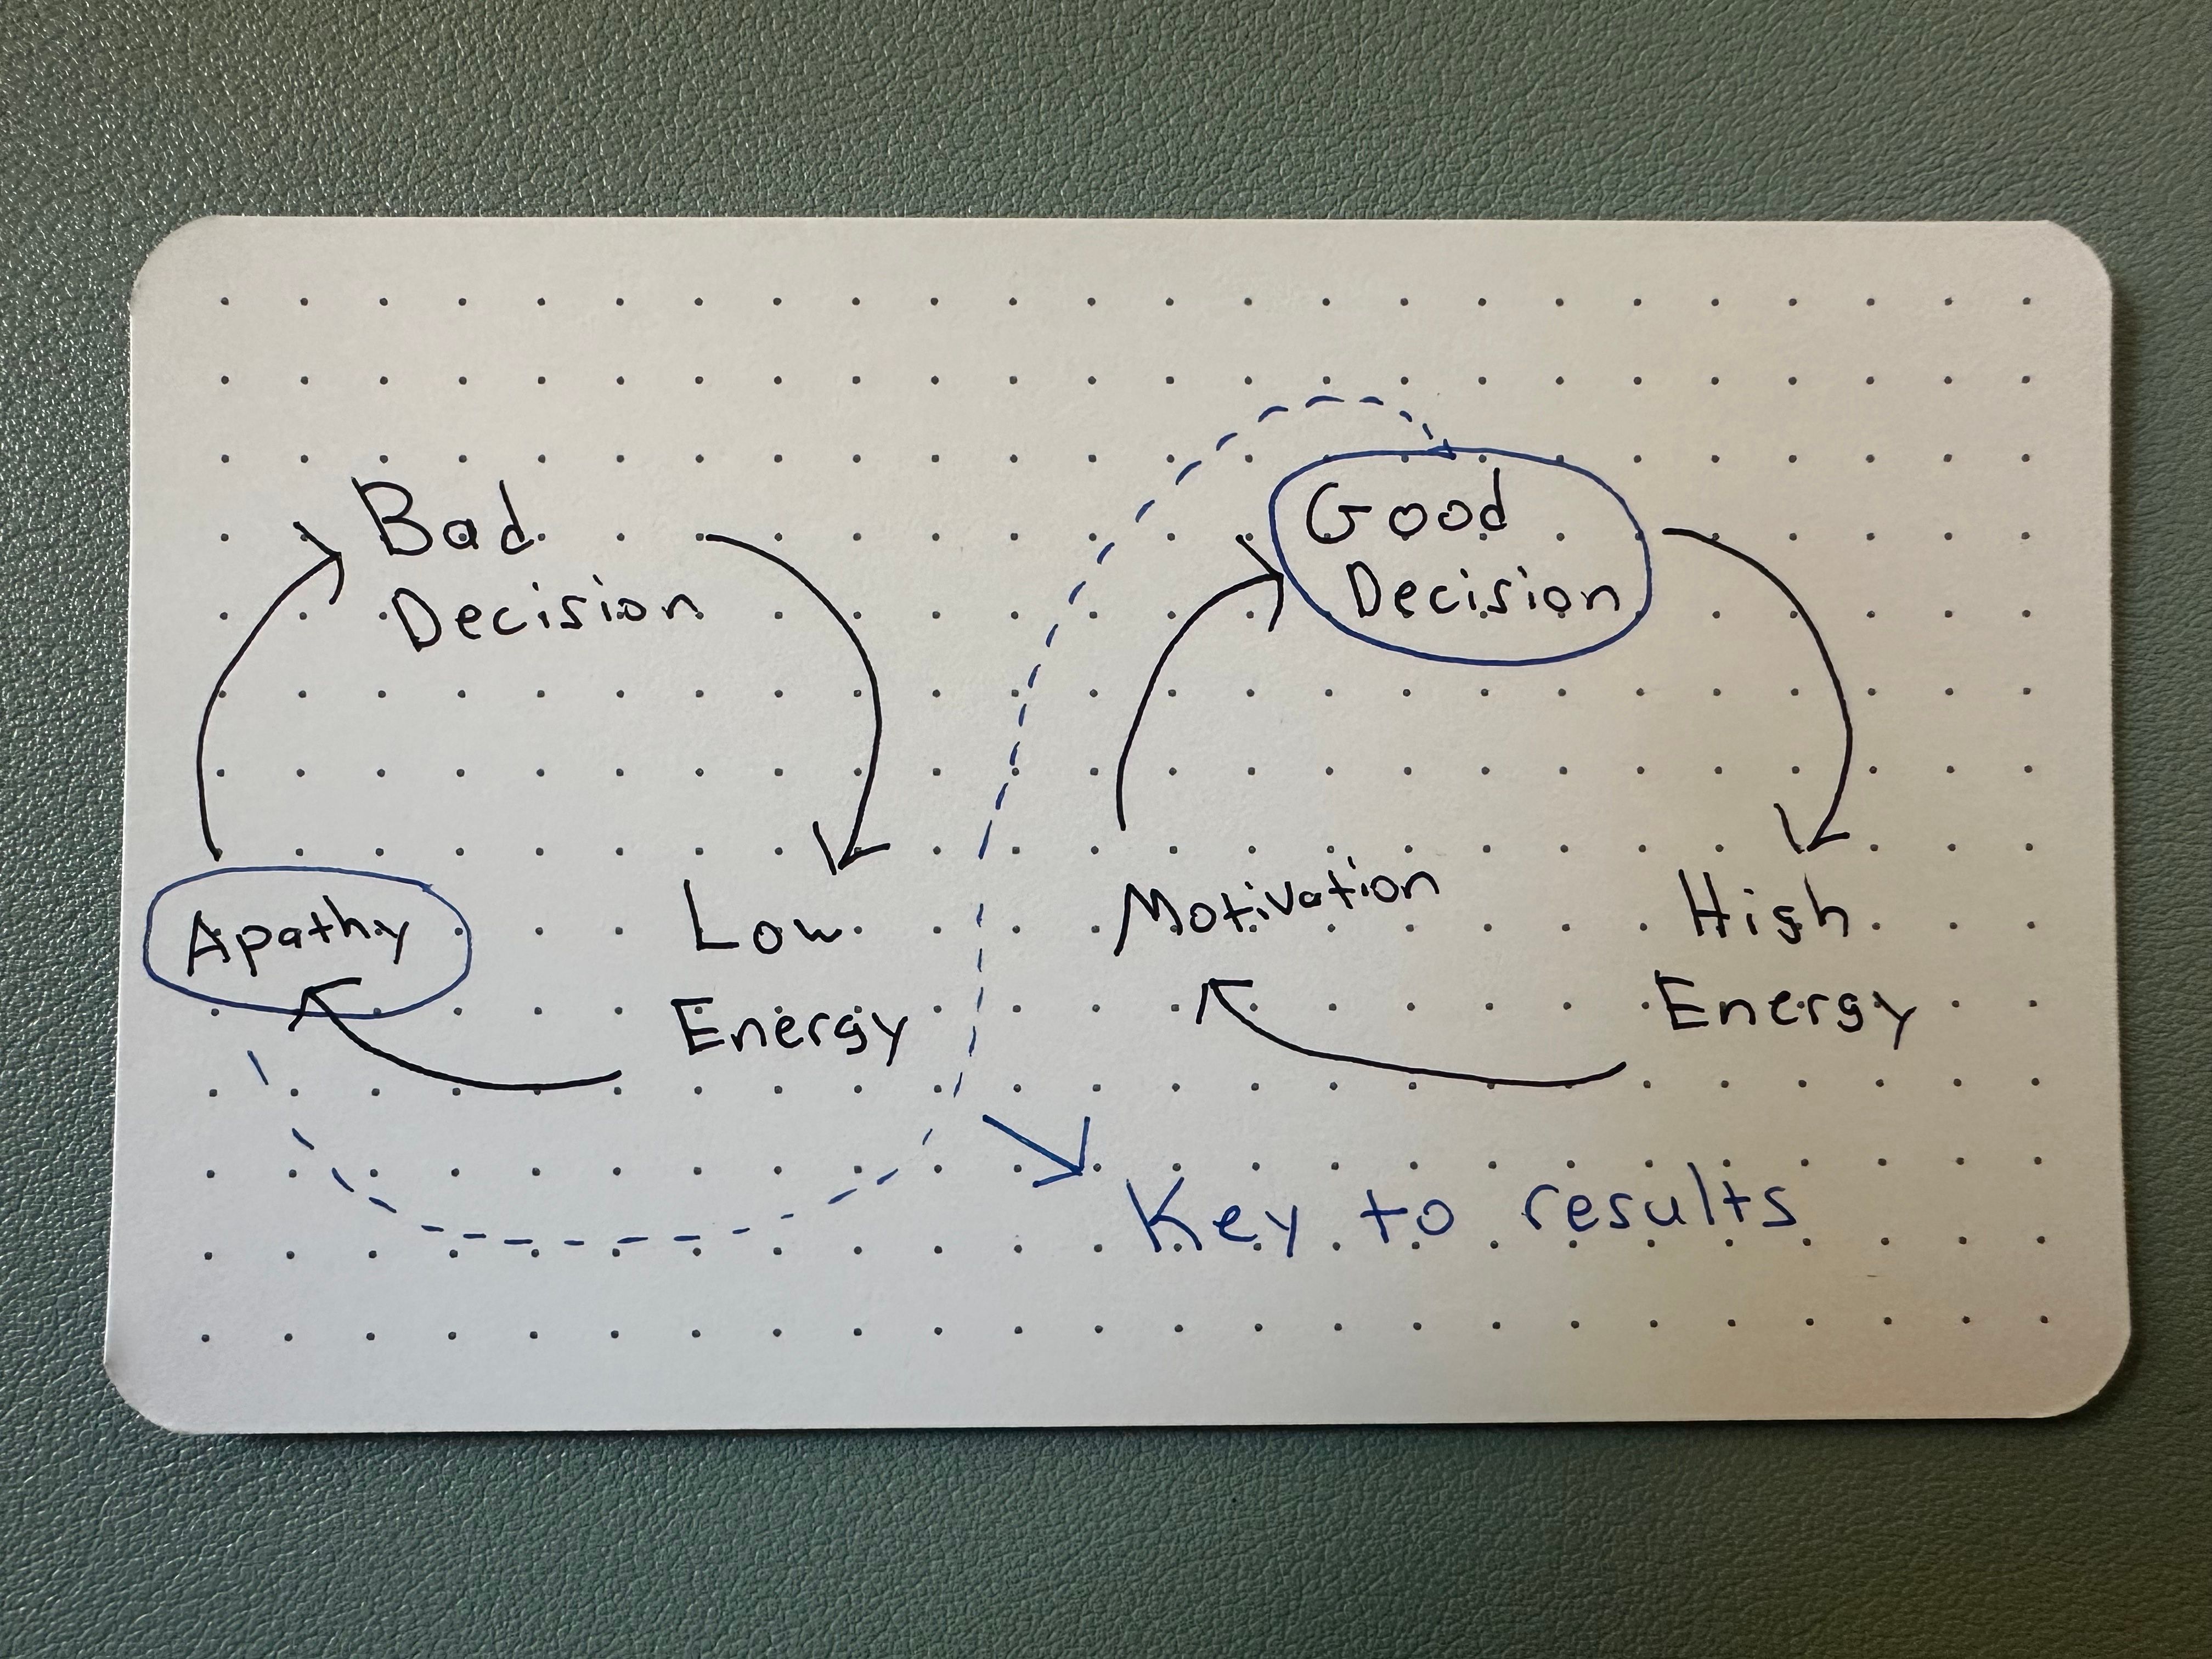 Bad
Decision
Low
Energy
Apathy
Good
Decision
High
Energy
Motivation
Key to results